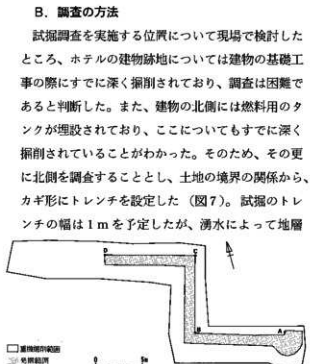 B. 調査の方法
試掘調査を実施する位置について現場で検討した
ところ、ホテルの建物跡地については建物の基礎工
事の際にすでに深く掘削されており、調査は困難で
あると判断した。また、建物の北側には燃料用のタ
ンクが埋設されており、ここについてもすでに深く
掘削されていることがわかった。そのため、その更
に北側を調査することとし、土地の境界の関係から、
カギ形にトレンチを設定した（図7）。試掘のトレ
ンチの幅は1mを予定したが、湧水によって地層
D C
B A
重機掘削範囲
0 5m